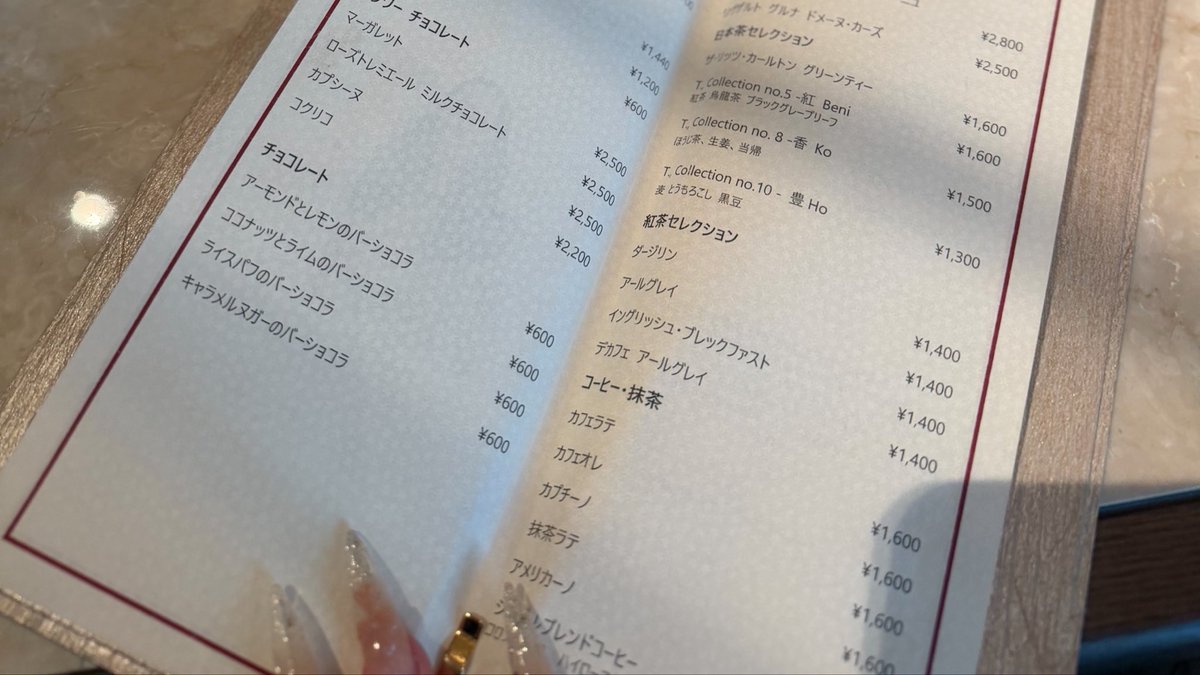 チョコレート
¥1,440
マーガレット
¥1,200
ローズトレミエール ミルクチョコレート
¥600
カプシーヌ
コクリコ
¥2,500
¥2,500
¥2,500
¥2,200
チョコレート
アーモンドとレモンのバーショコラ
¥600
ココナッツとライムのバーショコラ
¥600
ライスパフのバーショコラ
¥600
キャラメルヌガーのバーショコラ
¥600
グルナ ドメーヌ・カーズ
¥2,800
日本茶セレクション
¥2,500
ザ・リッツ・カールトン グリーンティー
T, Collection no.5 -紅 Beni
¥1,600
紅茶 烏龍茶 ブラックグレープリーフ
T, Collection no. 8 -香 Ko
¥1,600
ほうじ茶、生姜、当帰
¥1,500
T, Collection no.10 - 豊 Ho
麦 とうもろこし 黒豆
¥1,300
紅茶セレクション
ダージリン
¥1,400
アールグレイ
¥1,400
イングリッシュ・ブレックファスト
¥1,400
デカフェ アールグレイ
¥1,400
コーヒー・抹茶
カフェラテ
¥1,600
カフェオレ
¥1,600
カプチーノ
¥1,600
抹茶ラテ
¥1,600
アメリカーノ
ブレンドコーヒー